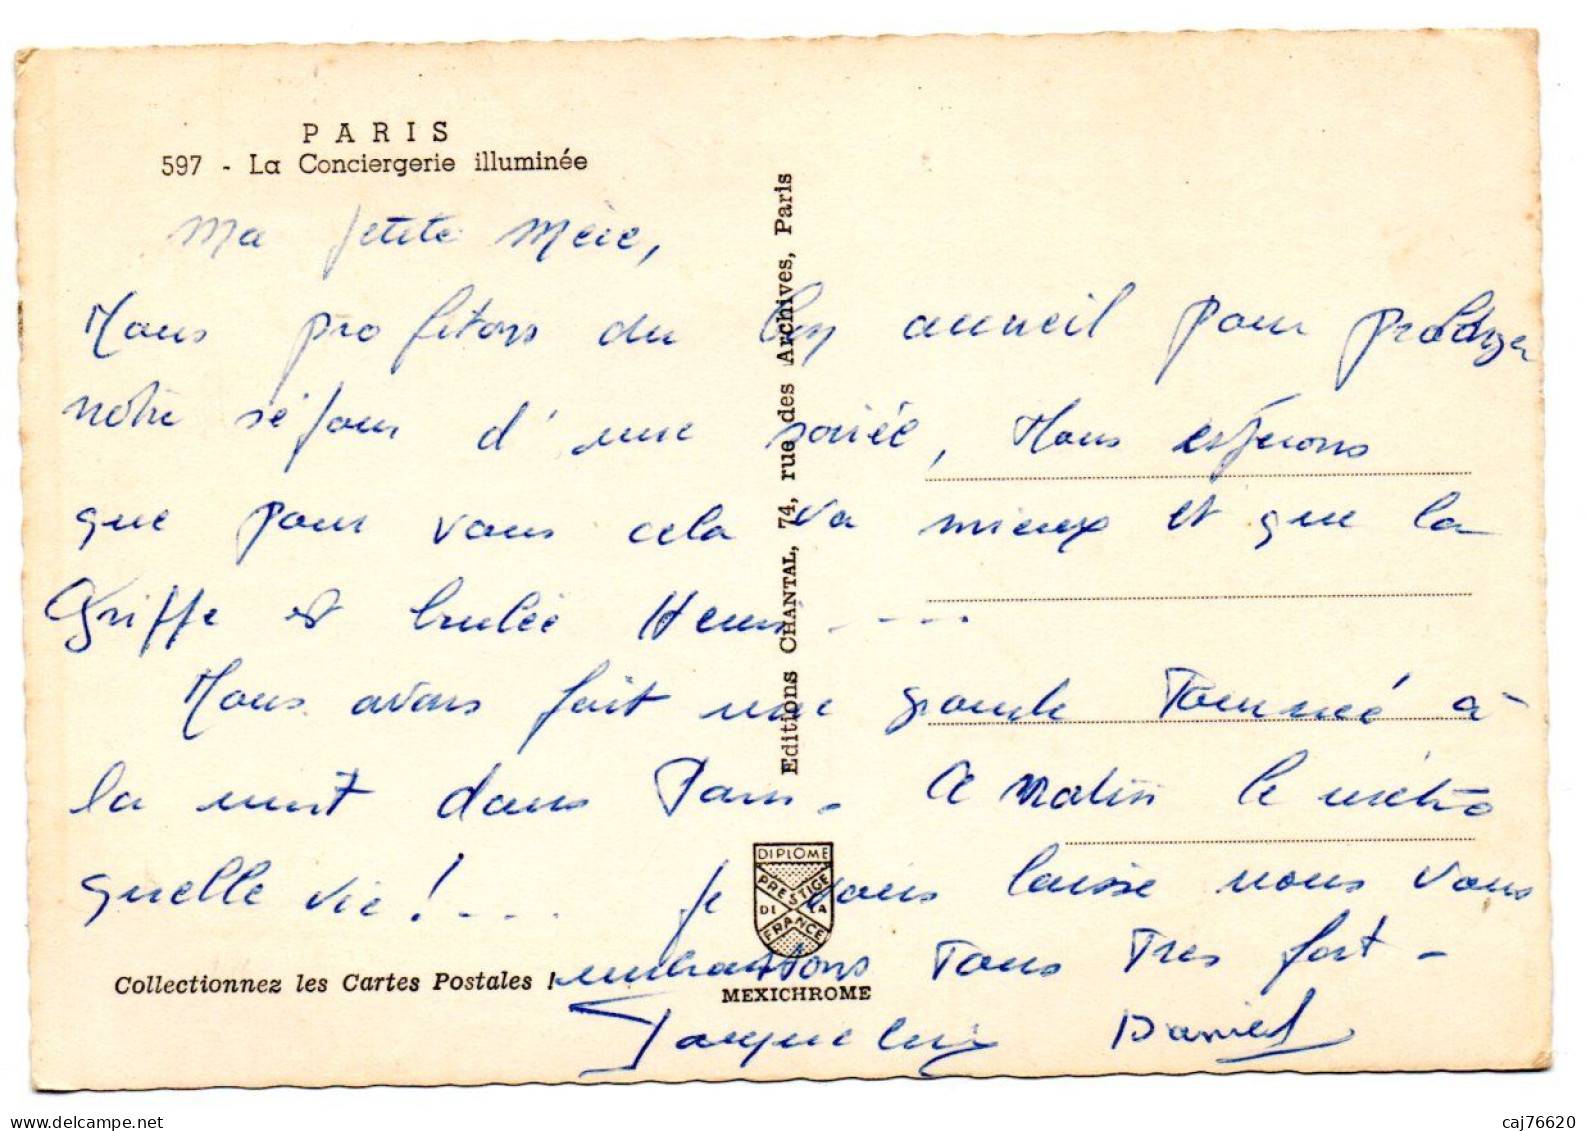 PARIS
597 - La Conciergerie illuminée
Ma petite Mère,
Nous profitons du bon accueil pour prolonger
notre séjour d'une soirée, Nous espérons
que pour vous cela va mieux et que la
Griffe est brulée Hein ----
Nous avons fait une grande Tournée à
la nuit dans Paris - Ce Matin le métro
quelle vie !.--- Je vous laisse nous vous
embrassons Tous Tres fort -
Jacqueline Daniel
Editions CHANTAL, 74, rue des Archives, Paris
DIPLOME
PRESTIGE
DE LA
FRANCE
Collectionnez les Cartes Postales !
MEXICHROME
www.delcampe.net
caj76620